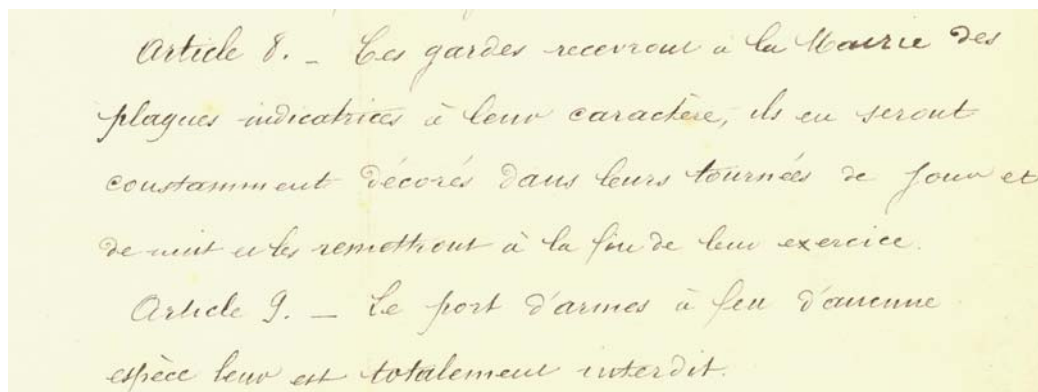 Article 8. _ Ces gardes recevront à la Mairie des
plaques indicatrices à leur caractère, ils en seront
constamment décorés dans leurs tournées de jour et
de nuit et les remettront à la fin de leur exercice.
Article 9. _ Le port d'armes à feu d'aucune
espèce leur est totalement interdit.